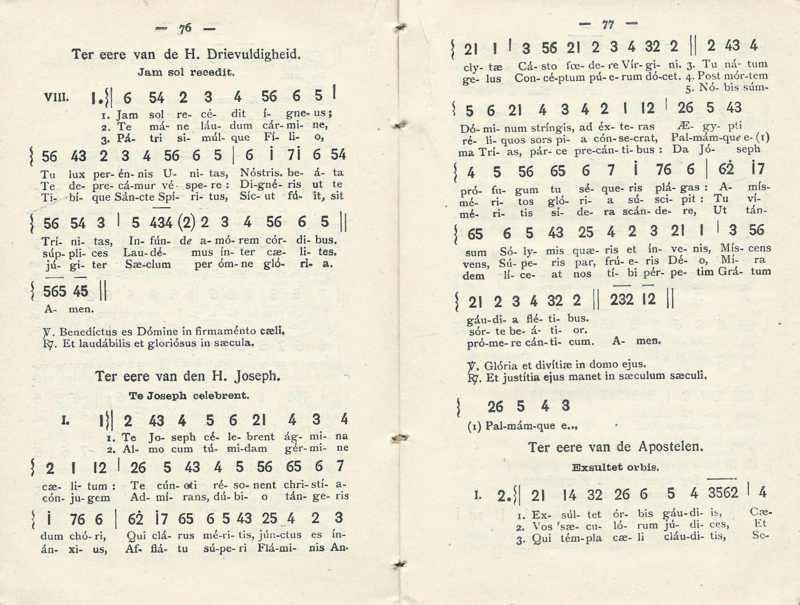 — 76 —
Ter eere van de H. Drievuldigheid.
Jam sol recedit.
VIII. 1. 6 54 2 3 4 56 6 5 1
1. Jam sol re- cé- dit í- gne-us;
2. Te má-ne láu-dum cár-mi-ne,
3. Pá- tri si-múl-que Fí-li-o,
56 43 2 3 4 56 6 5 | 6 i 7i 6 54
Tu lux per-én-nis U-ni-tas, Nóstris. be-á-ta
Te de-pre-cá-mur vé-spe-re: Di-gné-ris ut te
Ti-bí-que Sán-cte Spí-ri-tus, Síc-ut fú-it, sit
56 54 3 | 5 434 (2) 2 3 4 56 6 5 ||
Trí-ni-tas, In-fún-de a-mó-rem cór-di-bus.
súp-pli-ces Lau-dé- mus ín-ter cǽ-li-tes.
jú-gi-ter Sǽ-clum per óm-ne gló-ri-a.
565 45 ||
A- men.
℣. Benedíctus es Dómine in firmaménto cæli,
℟. Et laudábilis et gloriósus in sæcula.
Ter eere van den H. Joseph.
Te Joseph celebrent.
I. 1 || 2 43 4 5 6 21 4 3 4
1. Te Jo-seph cé-le-brent ág-mi-na
2. Al-mo cum tú-mi-dam gér-mi-ne
2 1 12 | 26 5 43 4 5 56 65 6 7
cæ-li-tum: Te cún-cti ré-so-nent chri-stí-a-
cón-ju-gem Ad-mí-rans, dú-bi-o tán-ge-ris
i 76 6 | 62 i7 65 6 5 43 25 4 2 3
dum chó-ri, Qui clá-rus mé-ri-tis, jún-ctus es ín-
án-xi-us, Af-flá-tu sú-pe-ri Flá-mi-nis An-
— 77 —
21 1 | 3 56 21 2 3 4 32 2 || 2 43 4
cly-tæ Cá-sto fœ-de-re Vír-gi-ni. 3. Tu ná-tum
ge-lus Con-cé-ptum pú-e-rum dó-cet. 4. Post mór-tem
5. Nó-bis súm-
5 6 21 4 3 4 2 1 12 | 26 5 43
Dó-mi-num stríngis, ad éx-te-ras Æ-gy-pti
ré-li-quos sors pi-a cón-se-crat, Pal-mám-que e-(1)
ma Trí-as, pár-ce pre-cán-ti-bus: Da Jó-seph
4 5 56 65 6 7 i 76 6 | 62 i7
pró-fu-gum tu sé-que-ris plá-gas: A-mís-
mé-ri-tos gló-ri-a sú-sci-pit: Tu ví-
mé-ri-tis sí-de-ra scán-de-re, Ut tán-
65 6 5 43 25 4 2 3 21 1 | 3 56
sum Só-ly-mis quæ-ris et ín-ve-nis, Mís-cens
vens, Sú-pe-ris par, frú-e-ris Dé-o, Mí-ra
dem lí-ce-at nos tí-bi pér-pe-tim Grá-tum
21 2 3 4 32 2 || 232 12 ||
gáu-di-a flé-ti-bus.
sór-te be-á-ti-or.
pró-me-re cán-ti-cum. A-men.
℣. Glória et divítiæ in domo ejus.
℟. Et justítia ejus manet in sæculum sæculi.
26 5 4 3
(1) Pal-mám-que e...
Ter eere van de Apostelen.
Exsultet orbis.
I. 2. || 21 14 32 26 6 5 4 3562 | 4
1. Ex-súl-tet ór-bis gáu-di-is, Cæ-
2. Vos sæ-cu-ló-rum jú-di-ces, Et
3. Qui tém-pla cæ-li cláu-di-tis, Se-